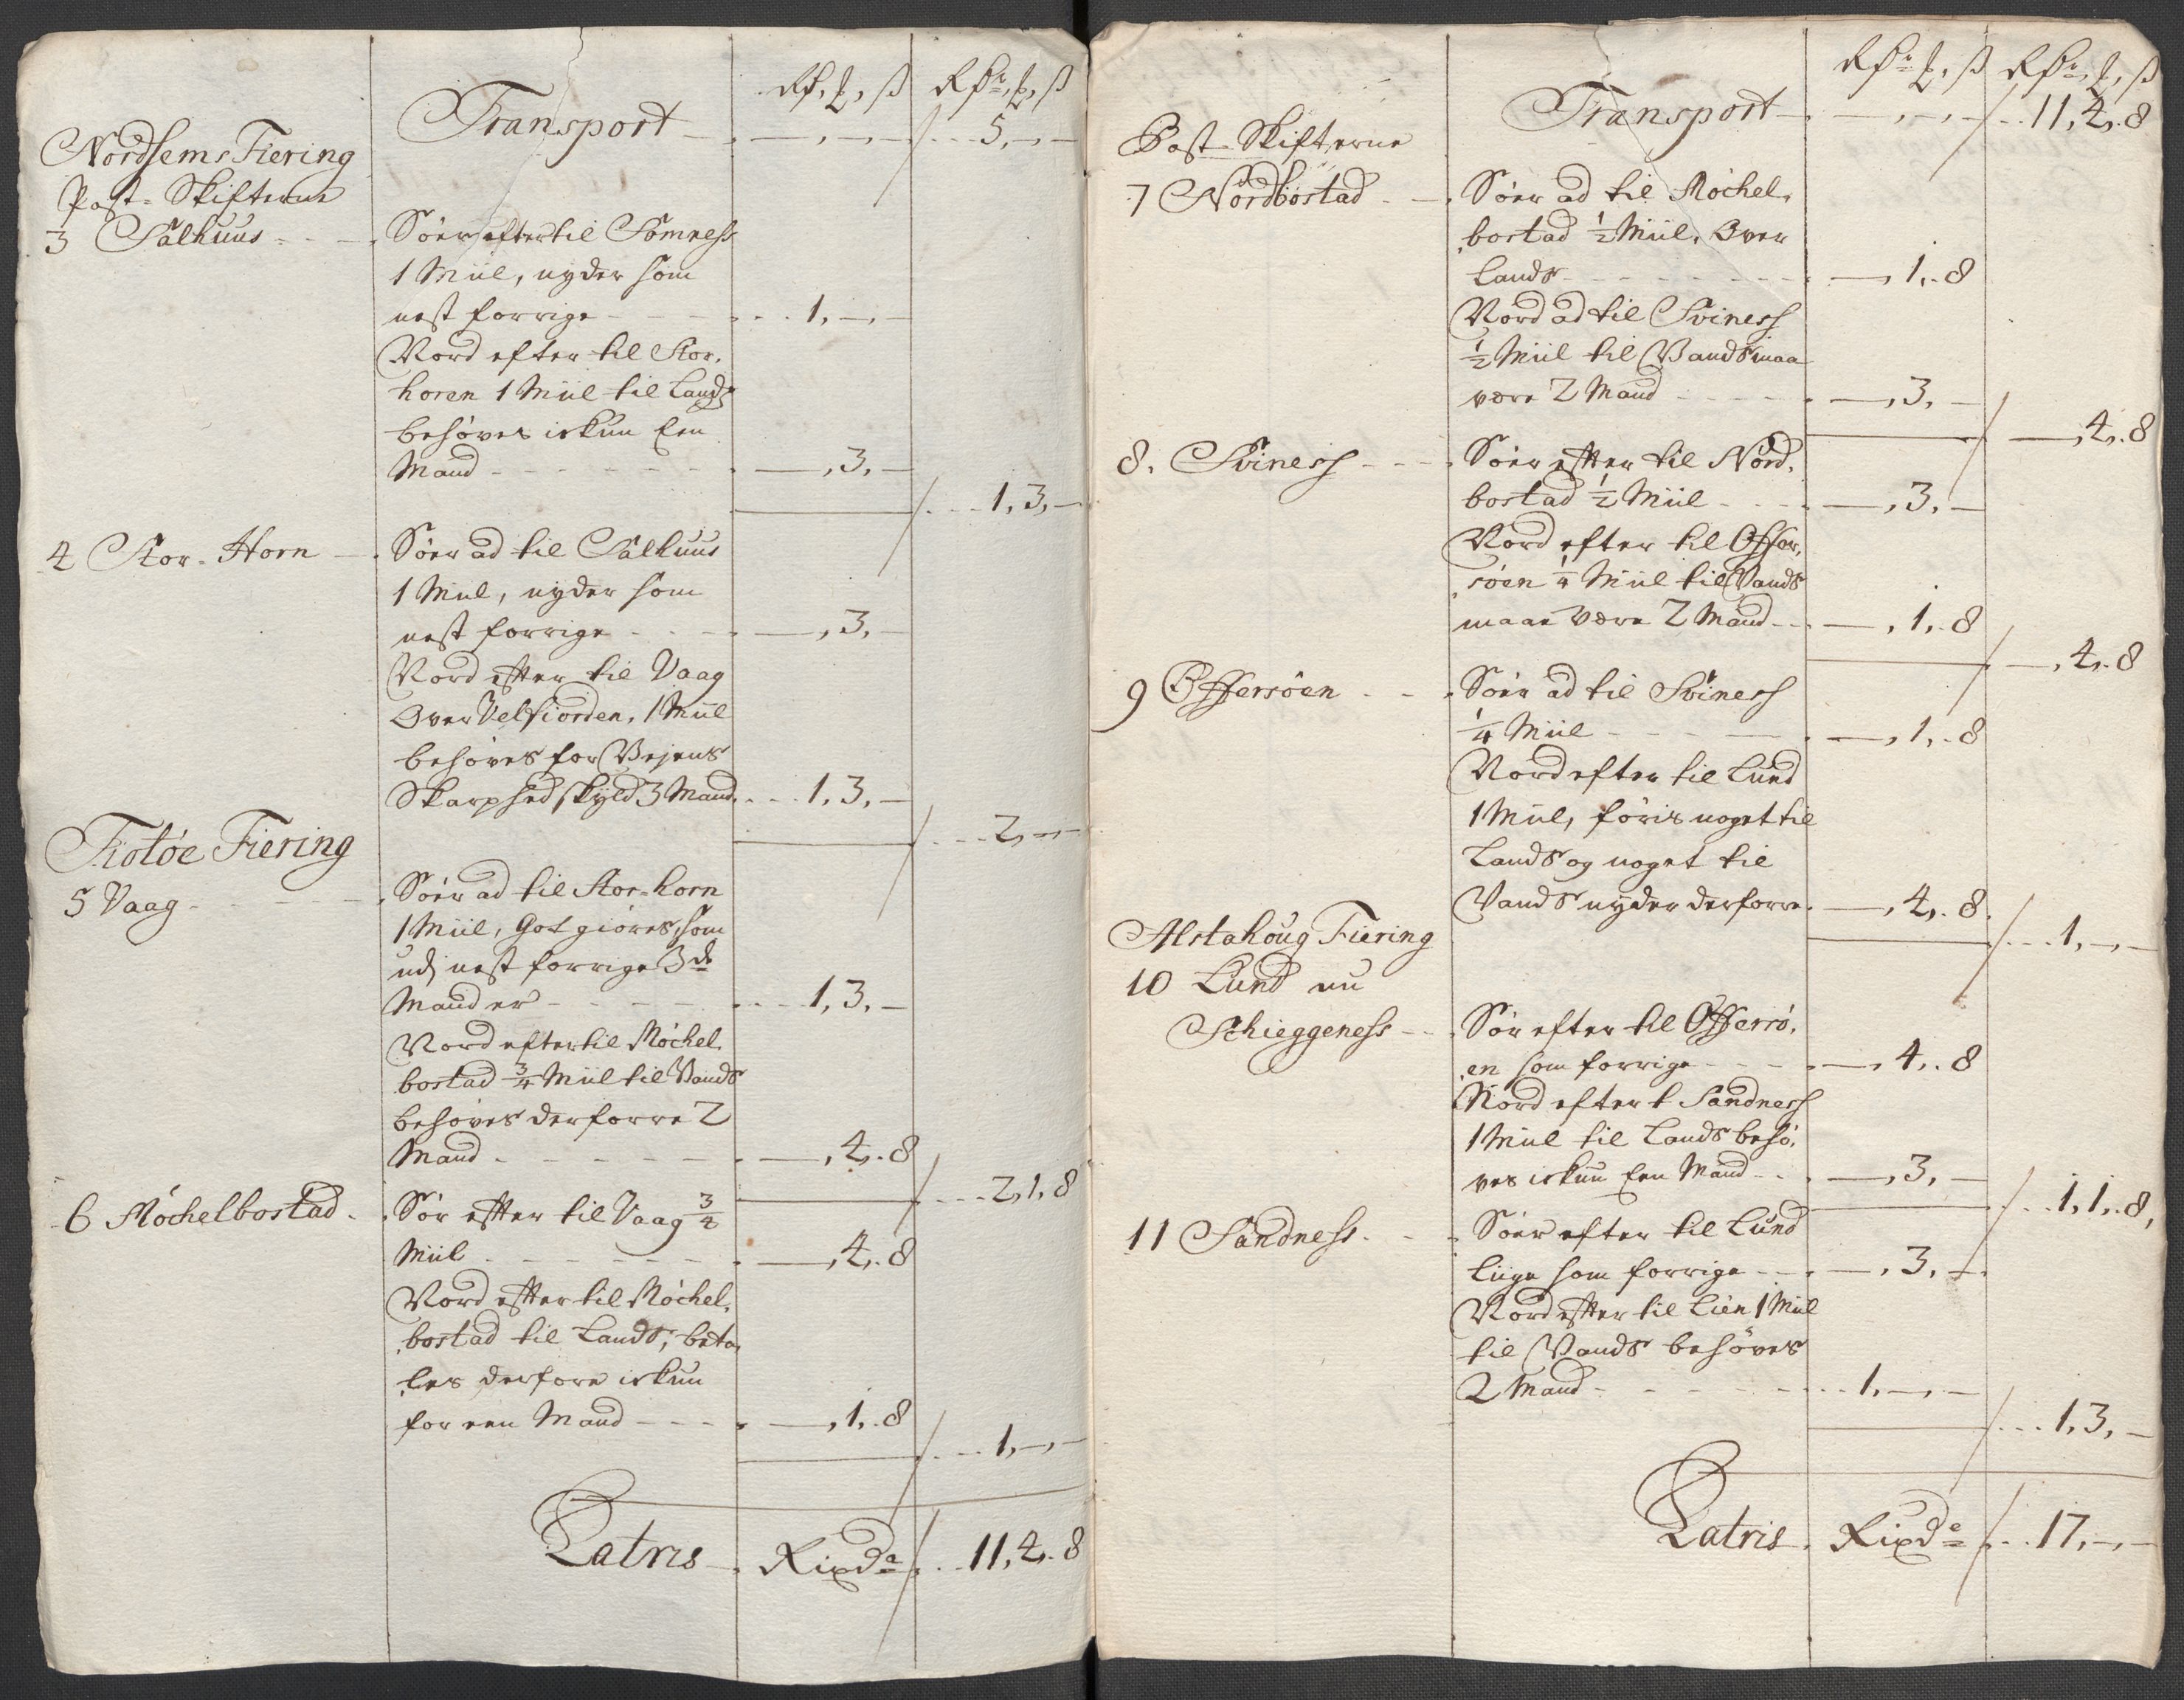 Rd, ƶ, ß Rdr, ƶ, ß
Transport - - - , - , - / - - 5, - , -
Nordhems Fiering
Post-Skifterne
3 Salhuus - - - Søer efter til Somness
1 Miil, nyder som
nest forrige - - - - - - 1, - , -
Nord efter til Stor-
horen 1 Miil til Lands
behøves ickun Een
Mand - - - - - - - - , 3, -
/ - - - 1, 3, -
4 Stor-Horn - Søer ad til Salhuus
1 Miil, nyder som
nest forrige - - - - , 3, -
Nord efter til Vaag
Over Velfiorden, 1 Miil
behøves for Vejens
Skarphed skyld 3 Mand - - - 1, 3, -
/ - - - 2, - , -
Tiotøe Fiering
5 Vaag - - - - Søer ad til Stor-horn
1 Miil, Got giøres, som
udj nest forrige 3de
Mand er - - - - - - - 1, 3, -
Nord efter til Møchel-
bostad 3/4 Miil til Vands
behøves derforre 2
Mand - - - - - - , 4, - 8
/ - - - 2, 1, 8
6 Møchelbostad - Sør efter til Vaag 3/4
Miil - - - - - - , 4, - 8
Nord efter til Møchel-
bostad til Lands, beta-
les derfore ickun
for een Mand - - - - , 1, - 8
/ - - - 1, - , -
Latris Rixdr / - - 11, 4, - 8
Rdr ƶ, ß Rdr, ƶ, ß
Transport - - , - , - / - - 11, 4, - 8
Post-Skifterne
7 Nordbostad - - Søer ad til Møchel-
bostad 1/2 Miil, Over
Lands - - - - - - , 1, - 8
Nord ad til Sviness
1/2 Miil til Vands maa
være 2 Mand - - - - , 3, -
/ - , 4, - 8
8, Sviness - - - Søer efter til Nord-
bostad 1/2 Miil - - - - , 3, -
Nord efter til Offer-
søen 1/4 Miil til Vands
maae være 2 Mand - - - , 1, - 8
/ - , 4, - 8
9 Offersøen - - Søer ad til Sviness
1/4 Miil - - - - - , 1, - 8
Nord efter til Lund
1 Miil, føris noget til
Lands og noget til
Vands nyder derforre - , 4, - 8
/ - - - 1, - , -
Alstahoug Fiering
10 Lund nu
Schieggeness - - Sør efter til Offersø-
en som forrige - - - - , 4, - 8
Nord efter t Sandness
1 Miil til Lands behø-
ves ickun Een Mand - - - , 3, -
/ - - 1, 1, - 8,
11 Sandness - - Søer efter til Lund
liige som forrige - - - , 3, -
Nord efter til Lien 1 Miil
til Vands behøves
2 Mand - - - - - - - 1, - , -
/ - - - 1, 3, -
Latris Rixdr / - - 17, - , -